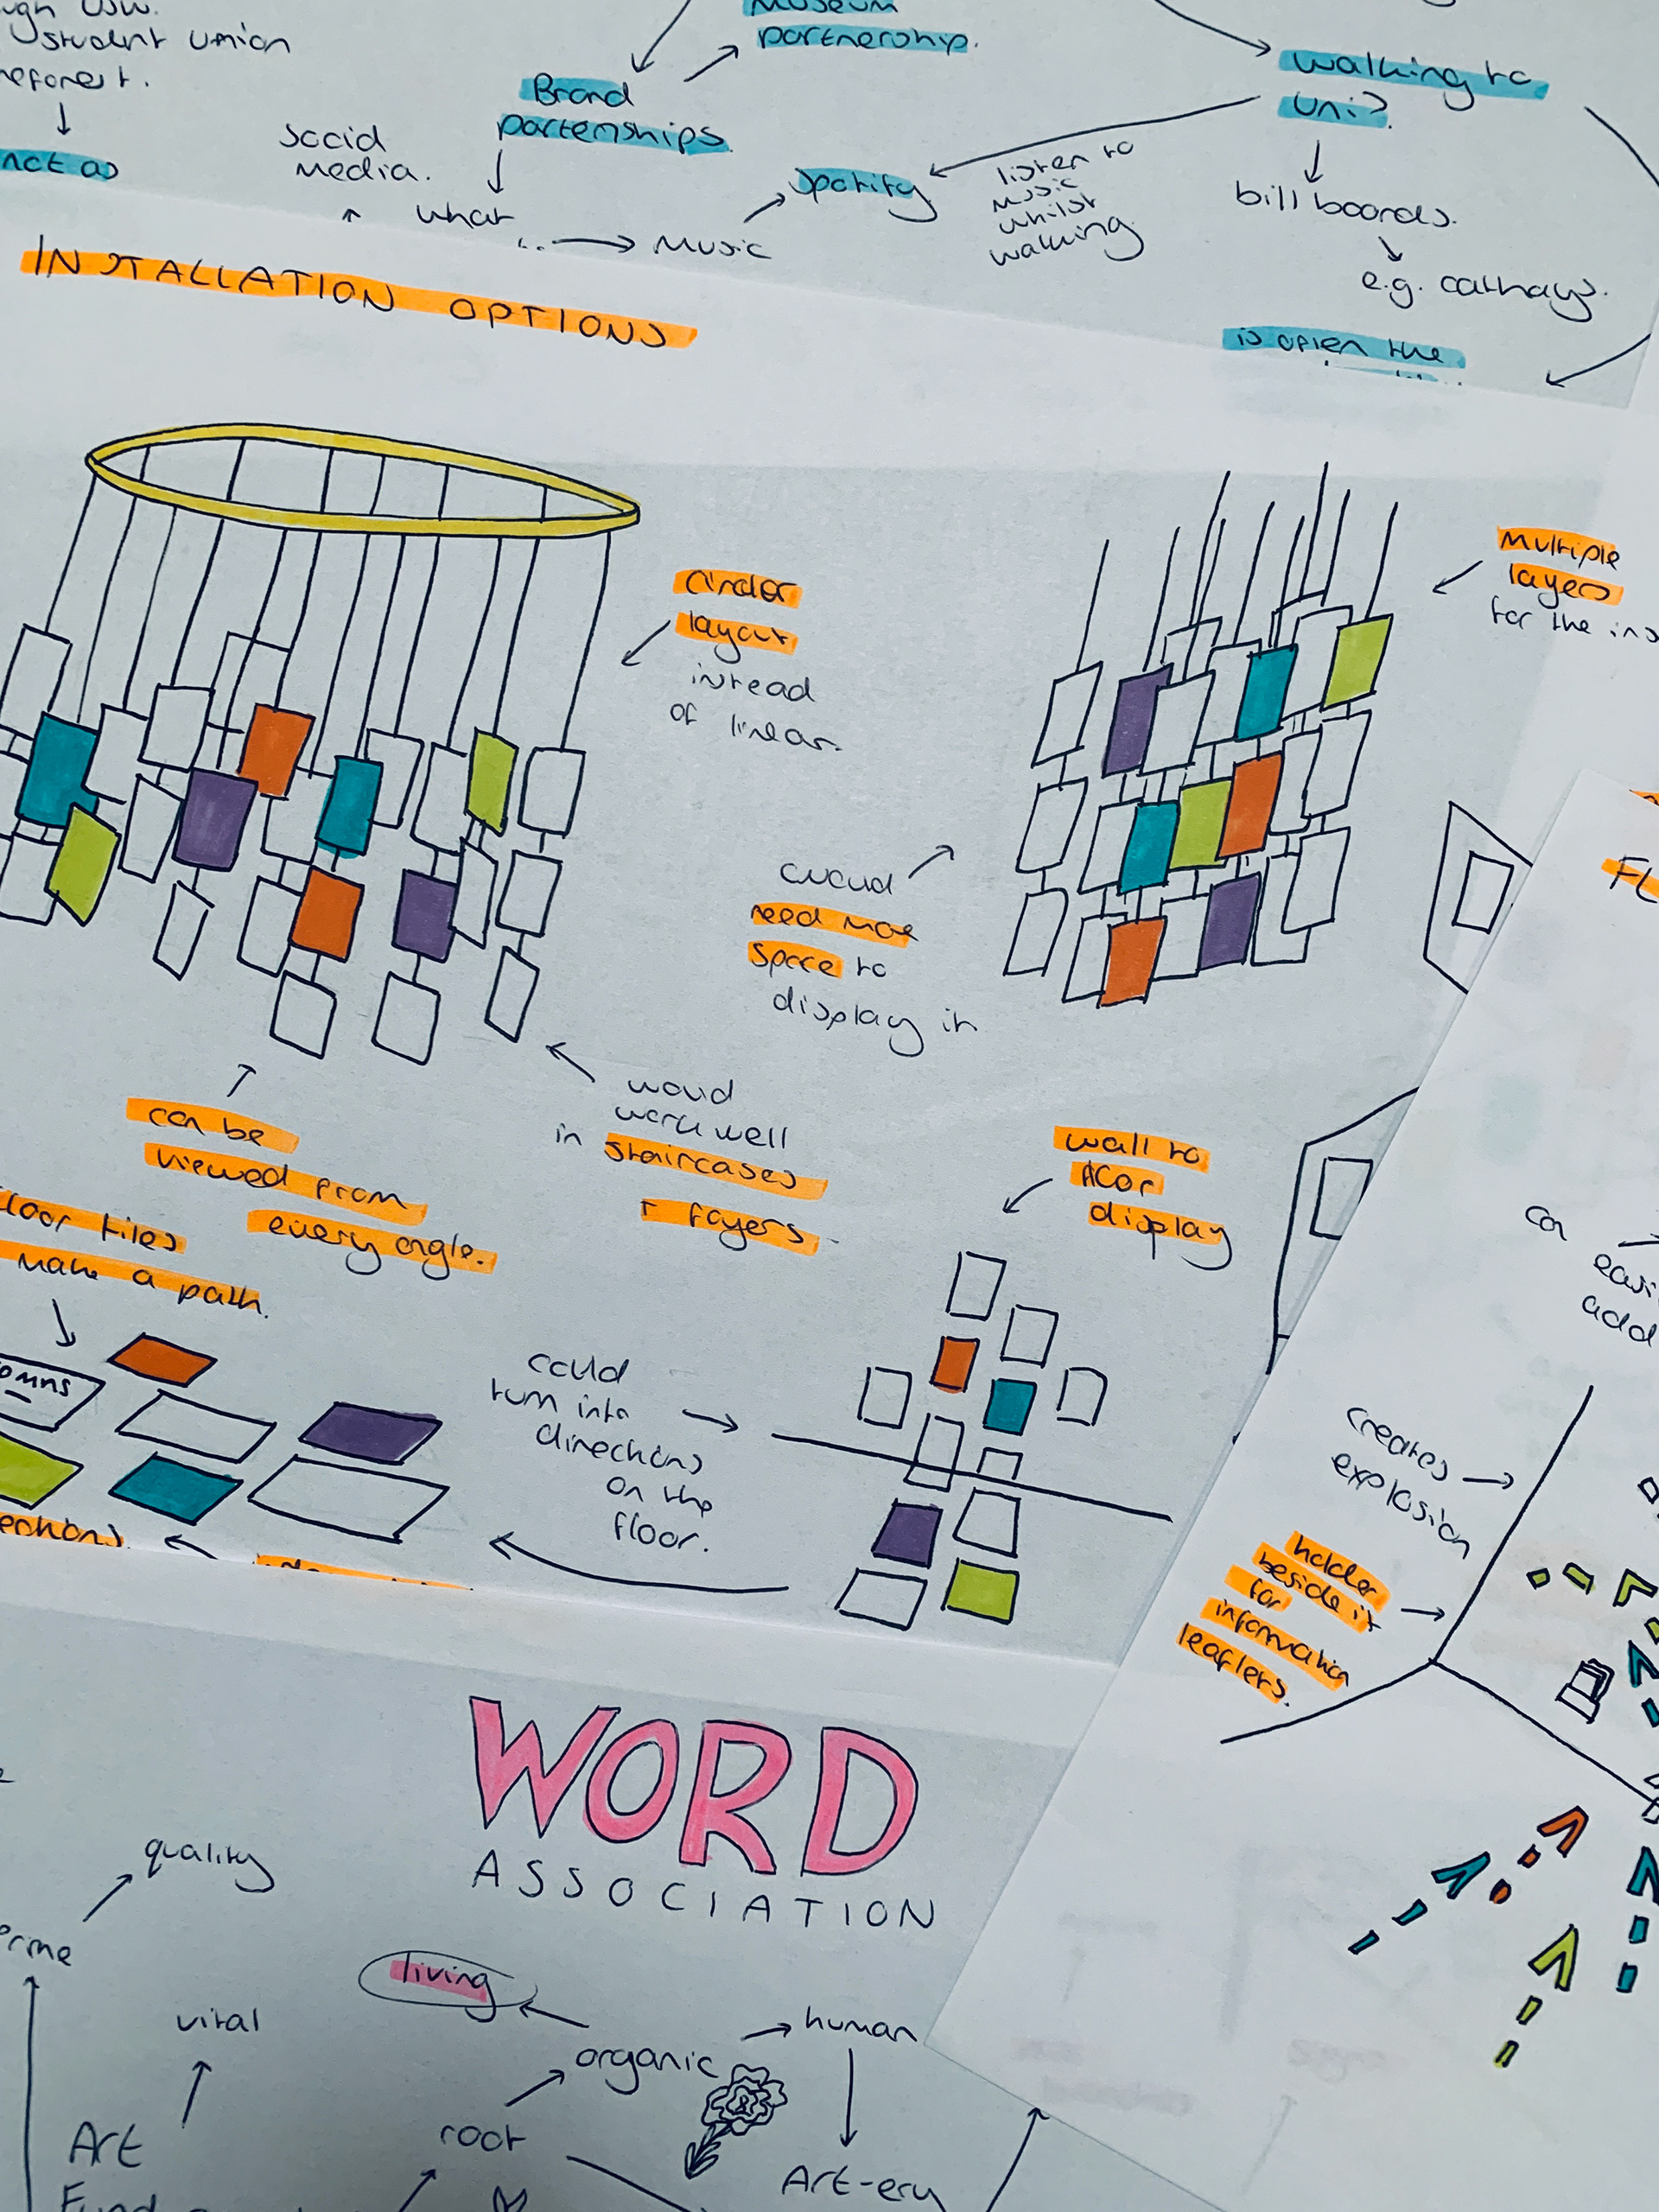 student union
Museum
partnership.
Brand
partenships
social
media.
what
..
Music
Spotify
listen to
music
whilst
walking
walking to
uni?
billboards.
e.g. cathays.
is often the
INSTALLATION OPTIONS
layout
instead
of linear.
Multiple
layers
for the ins
need more
space to
display in
can be
viewed from
every angle.
would
work well
in staircases
+ foyers.
wall to
floor
display
floor tiles
make a path.
could
turn into
directions
on the
floor.
creates
explosion
holder
beside it
for
information
leaflets.
WORD
ASSOCIATION
quality
vital
living
organic
human
root
Art
Fund
Art-ery